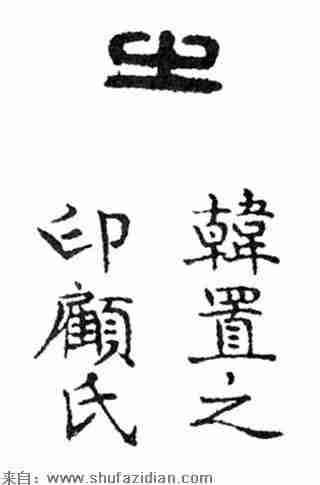 之
韓置之
印顧氏
来自：www.shufazidian.com